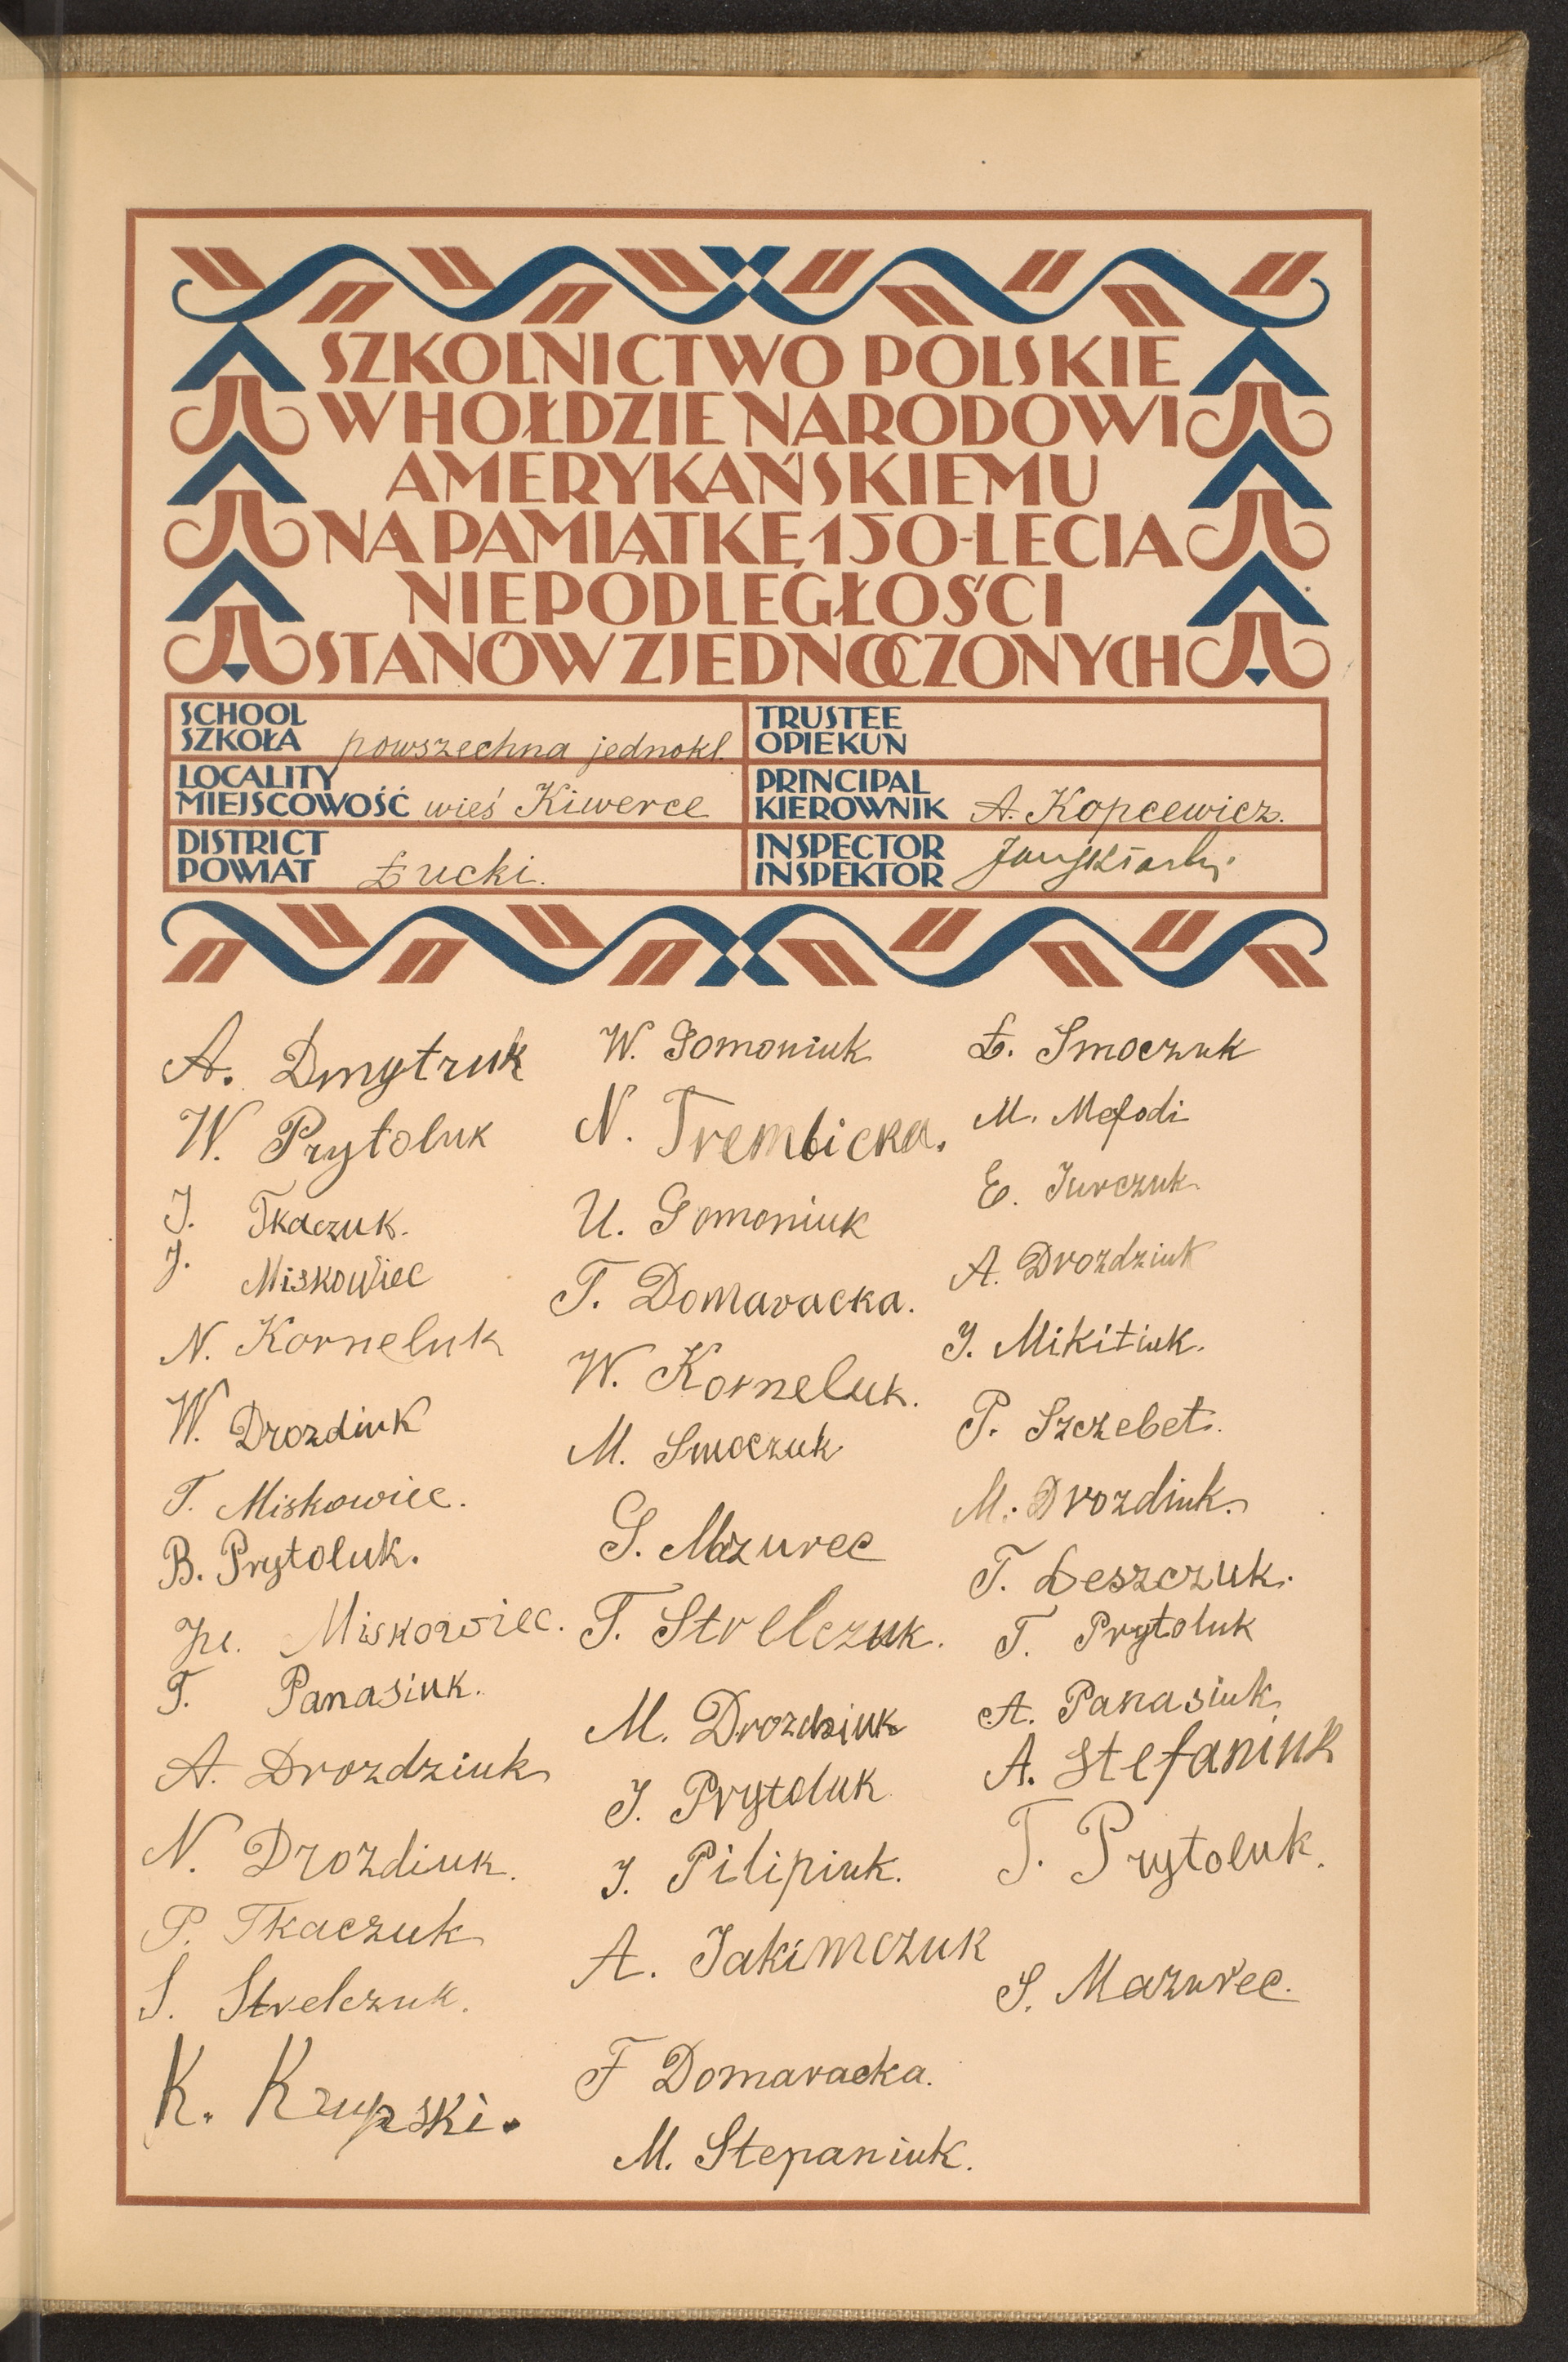 SZKOLNICTWO POLSKIE
W HOŁDZIE NARODOWI
AMERYKAŃSKIEMU
NA PAMIĄTKĘ 150-LECIA
NIEPODLEGŁOŚCI
STANÓW ZJEDNOCZONYCH
SCHOOL
SZKOŁA powszechna jednokl.
LOCALITY
MIEJSCOWOŚĆ wieś Kiwerce
DISTRICT
POWIAT Łucki.
TRUSTEE
OPIEKUN
PRINCIPAL
KIEROWNIK A. Kopcewicz.
INSPECTOR
INSPEKTOR
A. Dmytruk
W. Prytoluk
J. Tkaczuk.
J. Miskowiec
N. Korneluk
W. Drozdiuk
T. Miskowiec.
B. Prytoluk.
Miskowiec.
T. Panasiuk.
A. Drozdziuk
N. Drozdiuk.
P. Tkaczuk
S. Strelczuk.
K. Krupski.
W. Gomoniuk
N. Trembicka.
U. Gomoniuk
T. Domaracka.
W. Korneluk.
M. Smoczuk
G. Mazurec
T. Strelczuk.
M. Drozdziuk
J. Prytoluk
J. Pilipiuk.
A. Jakimczuk
F Domaracka.
M. Stepaniuk.
Ł. Smoczuk
M. Mefodi
E. Jurczuk
A. Drozdziuk
J. Mikitiuk.
P. Szczebet.
M. Drozdiuk.
T. Leszczuk.
T. Prytoluk
A. Panasiuk
A. Stefaniuk
T. Prytoluk.
S. Mazurec.